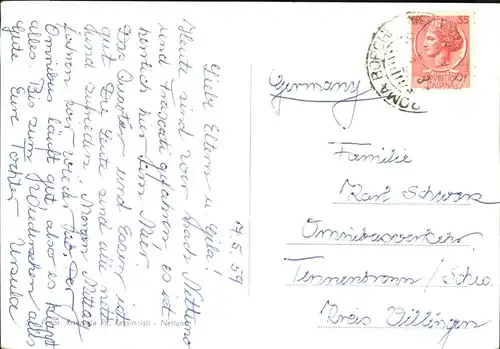 17.5.59
Liebe Eltern u. Gisla!
Heute sind wir nach Nettuno
und Frascati gefahren es ist
herrlich hier am Meer.
Das Quartier und Essen ist
gut. Die Leute sind alle nett
und zufrieden. Morgen Mittag
fahren wir wieder. Der
Omnibus läuft gut also es klappt
alles. Bis zum Wiedersehen alles
gute Eure Tochter Ursula
Germany
Familie
Karl Schwarz
Omnibusverkehr
Tennenbronn / Schw.
Kreis Villingen
ROMA BORGHI
35
Passionisti - Nettuno